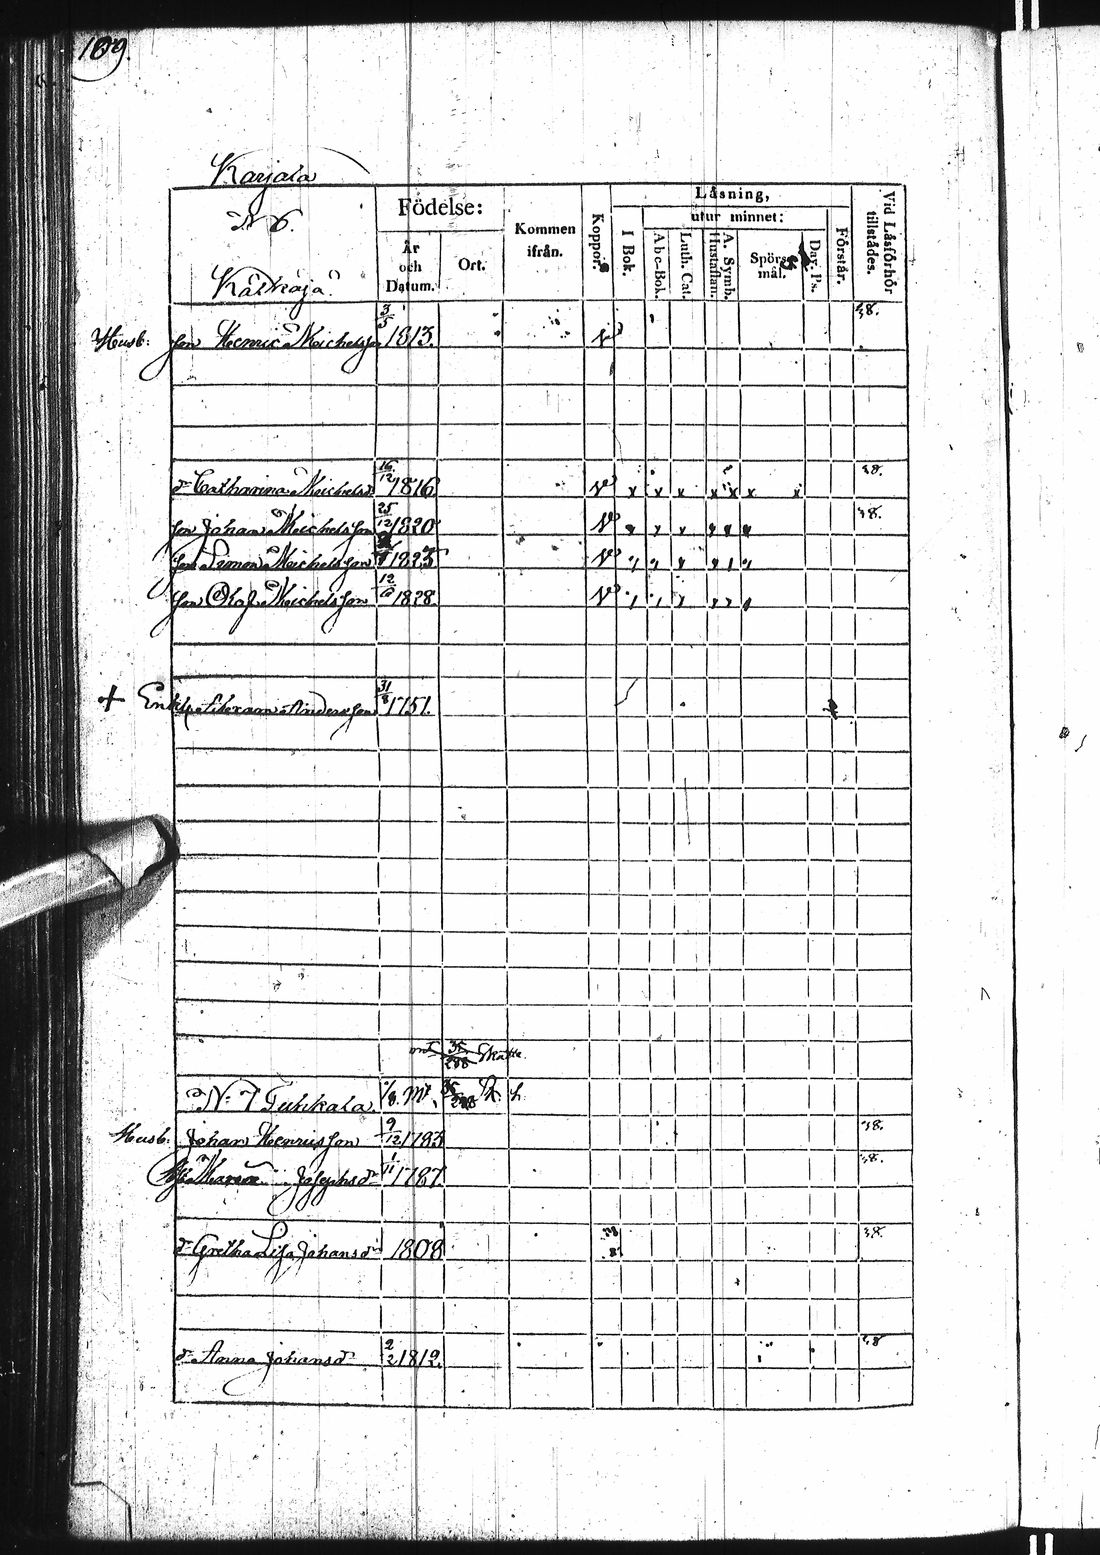 189.
Karjala
N 6.
Födelse:
År och Datum.
Ort.
Kommen ifrån.
Koppor.
Läsning,
utur minnet:
I Bok.
Abc-Bok.
Luth. Cat.
A. Symb. Hustaflan.
Spörsmål.
Dav. Ps.
Förstår.
Vid Läsförhör tillstädes.
Husb: son Henric Michelsson 3/3 1813. v 38.
dr Catharina Michelsdr 16/12 1816 v x x x x x x x 38.
son Johan Michelsson 25/12 1820 v 38.
son Simon Michelsson 1823 v
son Olof Michelsson 12/6 1828 v
+ Enkl. Andersson 31/8 1751.
35/288 Skatt
N: 7 Tuhkala. 1/8 Mt,
Husb. Johan Henricsson 9/12 1783 38.
Josephsdr 1/11 1787 38.
dr Gretha Lisa Johansdr 1808 38
dr Anna Johansdr 2/2 1812. 38